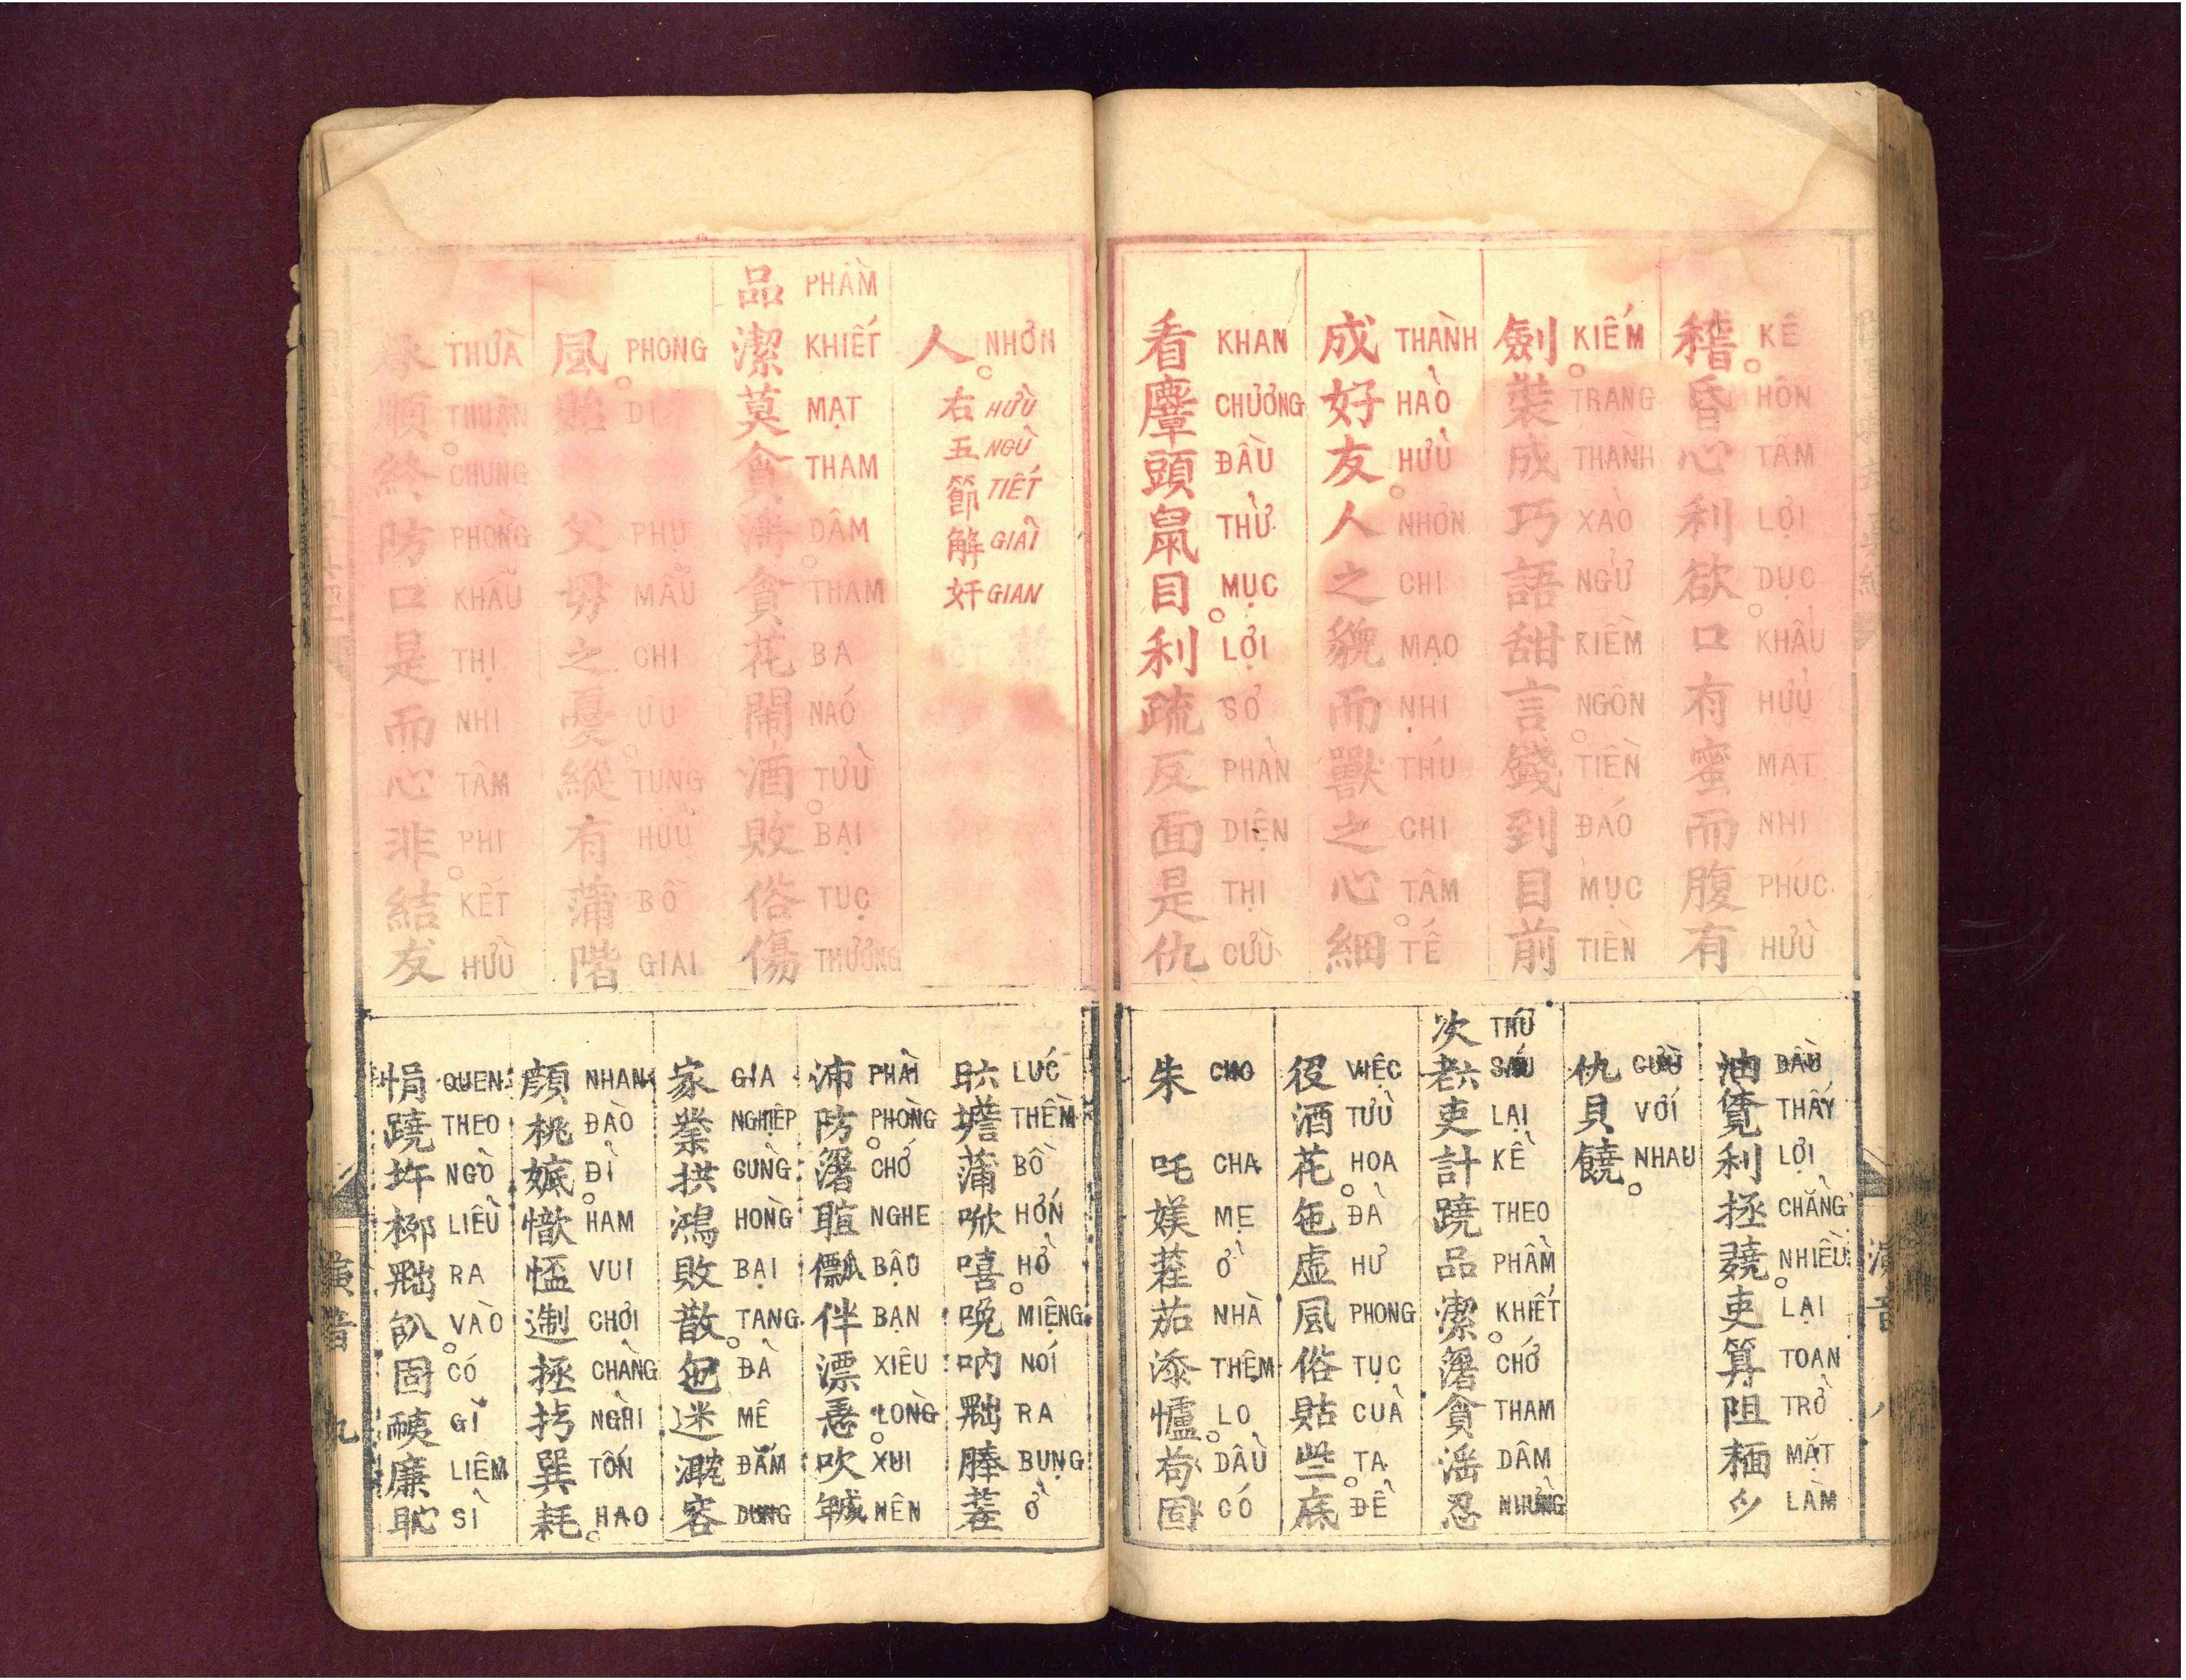 稽。昏心利欲。口有蜜而腹有
KÊ HÔN TÂM LỢI DỤC KHẨU HỮU MẬT NHI PHÚC HỮU
劍。裝成巧語甜言。錢到目前
KIẾM TRANG THÀNH XẢO NGỮ KIỀM NGÔN TIỀN ĐÁO MỤC TIỀN
成好友。人之貌而獸之心。細
THÀNH HẢO HỮU NHƠN CHI MẠO NHI THÚ CHI TÂM TẾ
看麞頭鼠目。利疏反面是仇
KHAN CHƯƠNG ĐẦU THỬ MỤC LỢI SƠ PHẢN DIỆN THỊ CỪU
油覓利拯𡗉。吏算阻𩈘𫜵
DẦU THẤY LỢI CHẲNG NHIỀU LẠI TOAN TRỞ MẶT LÀM
仇貝饒。
CỪU VỚI NHAU
次𦒹吏計蹺品潔。𣻆貪淫忍
THỨ SÁU LẠI KỂ THEO PHẨM KHIẾT CHỚ THAM DÂM NHỮNG
役酒花。㐌虛風俗貼些。底
VIỆC TỬU HOA ĐÀ HƯ PHONG TỤC CỦA TA ĐỂ
朱 吒媄於茹添爐。苟固
CHO CHA MẸ Ở NHÀ THÊM LO DẦU CÓ
人。右五節解奸
NHƠN HỮU NGŨ TIẾT GIẢI GIAN
品潔莫貪淫。貪花鬧酒。敗俗傷
PHẨM KHIẾT MẠT THAM DÂM THAM BA NÁO TỬU BẠI TỤC THƯƠNG
風。貽 父母之憂。縱有蒲階
PHONG DI PHỤ MẪU CHI ƯU TUNG HỮU BỒ GIAI
承順。終防口是而心非。結友
THỪA THUẬN CHUNG PHÒNG KHẨU THỊ NHI TÂM PHI KẾT HỮU
蒲 嘻。吶 於
LÚC THỀM BỒ HỚN HỞ MIỆNG NÓI RA BỤNG Ở
沛防。𣻆 伴漂 。吹
PHẢI PHÒNG CHỚ NGHE BẬU BẠN XIÊU LÒNG XUI NÊN
家業拱鴻敗散。㐌迷 容
GIA NGHIỆP CŨNG HỒNG BẠI TANG ĐÀ MÊ ĐẮM DUNG
顏桃 。 拯 巽耗。
NHAN ĐÀO ĐĨ HAM VUI CHƠI CHẲNG NGHĨ TỐN HAO
悁蹺 柳 。固 廉恥
QUEN THEO NGÕ LIỄU RA VÀO CÓ GÌ LIÊM SỈ
演音 八
演音 九